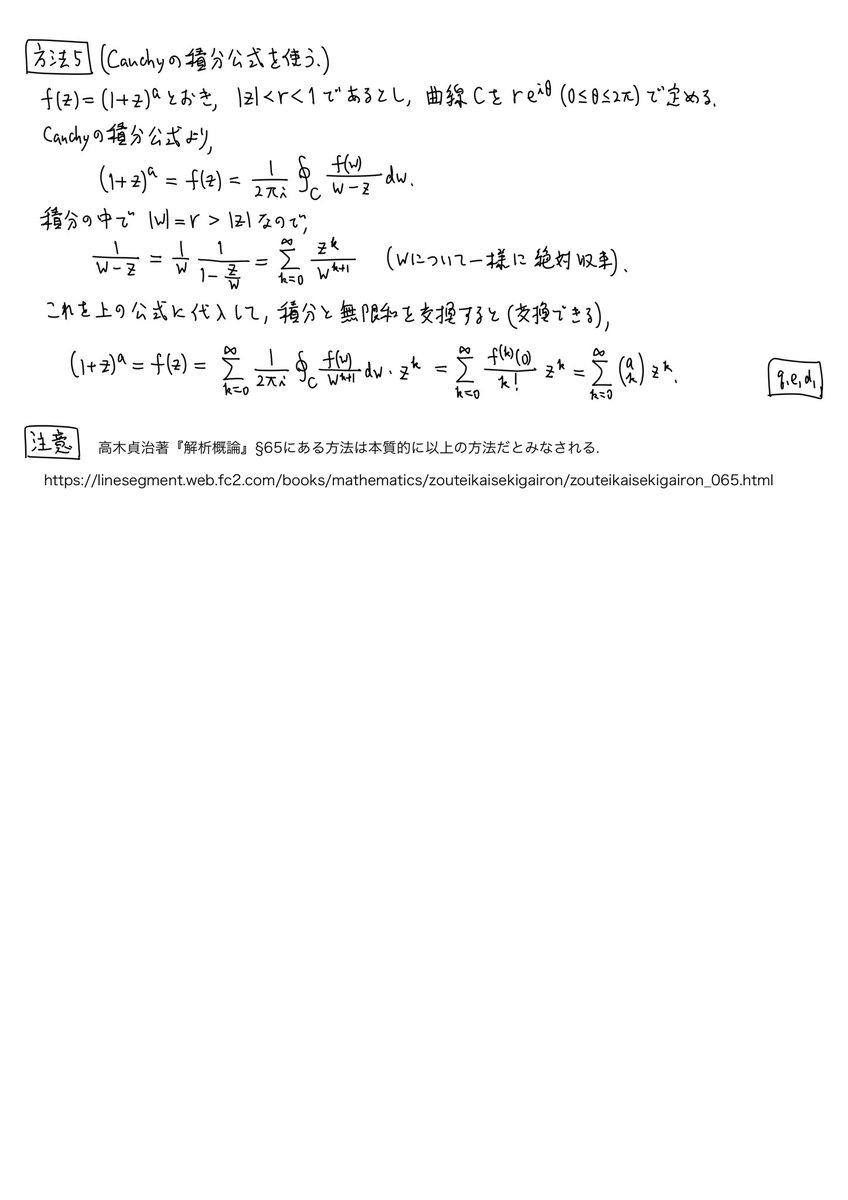 方法5 (Cauchyの積分公式を使う.)
f(z) = (1+z)^a とおき, |z| < r < 1 であるとし, 曲線 C を re^{iθ} (0≤θ≤2π) で定める.
Cauchyの積分公式より,
(1+z)^a = f(z) = \frac{1}{2πi} ∮_C \frac{f(w)}{w-z} dw.
積分の中で |w| = r > |z| なので,
\frac{1}{w-z} = \frac{1}{w} \frac{1}{1-\frac{z}{w}} = \sum_{k=0}^{∞} \frac{z^k}{w^{k+1}} (wについて一様に絶対収束).
これを上の公式に代入して, 積分と無限和を交換すると (交換できる),
(1+z)^a = f(z) = \sum_{k=0}^{∞} \frac{1}{2πi} ∮_C \frac{f(w)}{w^{k+1}} dw · z^k = \sum_{k=0}^{∞} \frac{f^{(k)}(0)}{k!} z^k = \sum_{k=0}^{∞} \binom{a}{k} z^k.
q.e.d.
注意 高木貞治著『解析概論』§65にある方法は本質的に以上の方法だとみなされる.
https://linesegment.web.fc2.com/books/mathematics/zouteikaisekigairon/zouteikaisekigairon_065.html